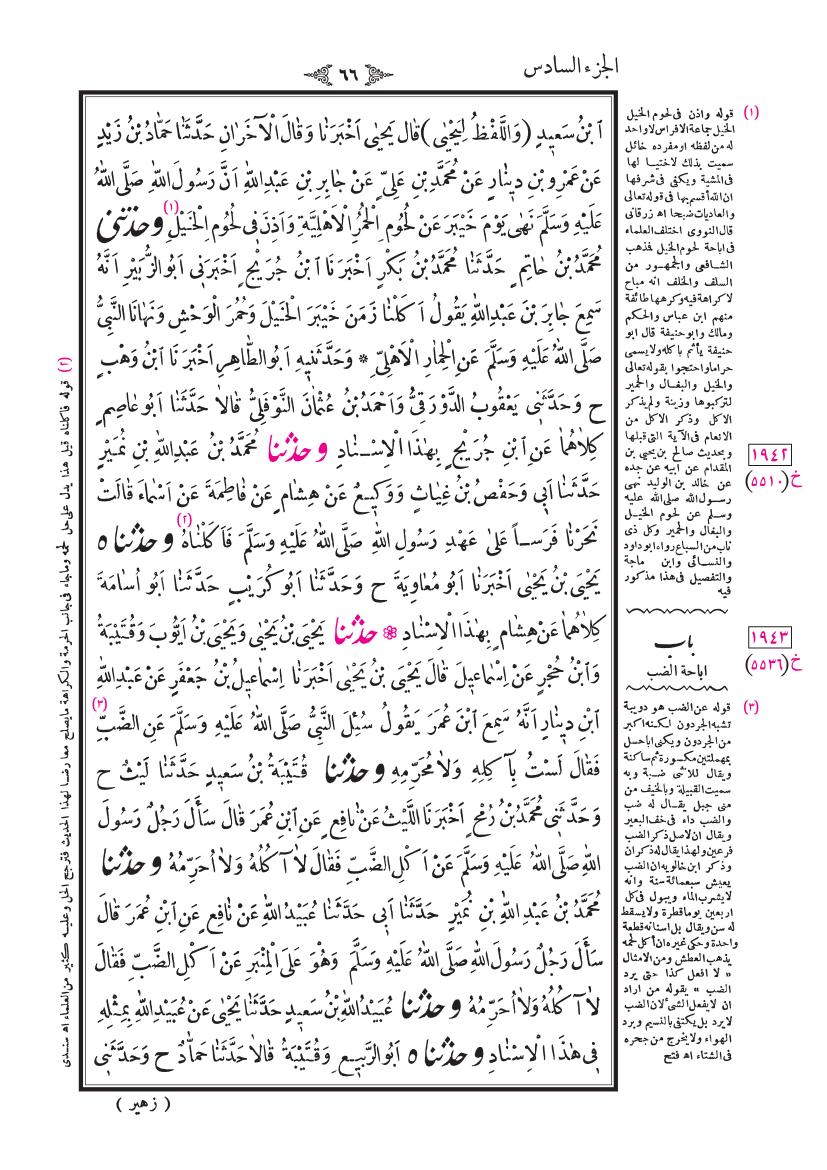 الجزء السادس
٦٦
ابْنُ سَعِيدٍ (وَاللَّفْظُ لِيَحْيَى) قَالَ يَحْيَى أَخْبَرَنَا وَقَالَ الْآخَرَانِ حَدَّثَنَا حَمَّادُ بْنُ زَيْدٍ
عَنْ عَمْرِو بْنِ دِينَارٍ عَنْ مُحَمَّدِ بْنِ عَلِيٍّ عَنْ جَابِرِ بْنِ عَبْدِ اللهِ أَنَّ رَسُولَ اللهِ صَلَّى اللهُ
عَلَيْهِ وَسَلَّمَ نَهَى يَوْمَ خَيْبَرَ عَنْ لُحُومِ الْحُمُرِ الْأَهْلِيَّةِ وَأَذِنَ فِي لُحُومِ الْخَيْلِ (١) وَحَدَّثَنِي
مُحَمَّدُ بْنُ حَاتِمٍ حَدَّثَنَا مُحَمَّدُ بْنُ بَكْرٍ أَخْبَرَنَا ابْنُ جُرَيْجٍ أَخْبَرَنِي أَبُو الزُّبَيْرِ أَنَّهُ
سَمِعَ جَابِرَ بْنَ عَبْدِ اللهِ يَقُولُ أَكَلْنَا زَمَنَ خَيْبَرَ الْخَيْلَ وَحُمُرَ الْوَحْشِ وَنَهَانَا النَّبِيُّ
صَلَّى اللهُ عَلَيْهِ وَسَلَّمَ عَنِ الْحِمَارِ الْأَهْلِيِّ * وَحَدَّثَنِيهِ أَبُو الطَّاهِرِ أَخْبَرَنَا ابْنُ وَهْبٍ
ح وَحَدَّثَنِي يَعْقُوبُ الدَّوْرَقِيُّ وَأَحْمَدُ بْنُ عُثْمَانَ النَّوْفَلِيُّ قَالَا حَدَّثَنَا أَبُو عَاصِمٍ
كِلَاهُمَا عَنِ ابْنِ جُرَيْجٍ بِهٰذَا الْإِسْنَادِ وَحَدَّثَنَا مُحَمَّدُ بْنُ عَبْدِ اللهِ بْنِ نُمَيْرٍ
حَدَّثَنَا أَبِي وَحَفْصُ بْنُ غِيَاثٍ وَوَكِيعٌ عَنْ هِشَامٍ عَنْ فَاطِمَةَ عَنْ أَسْمَاءَ قَالَتْ
نَحَرْنَا فَرَسًا عَلَى عَهْدِ رَسُولِ اللهِ صَلَّى اللهُ عَلَيْهِ وَسَلَّمَ فَأَكَلْنَاهُ (٢) وَحَدَّثَنَاهُ
يَحْيَى بْنُ يَحْيَى أَخْبَرَنَا أَبُو مُعَاوِيَةَ ح وَحَدَّثَنَا أَبُو كُرَيْبٍ حَدَّثَنَا أَبُو أُسَامَةَ
كِلَاهُمَا عَنْ هِشَامٍ بِهٰذَا الْإِسْنَادِ * حَدَّثَنَا يَحْيَى بْنُ يَحْيَى وَيَحْيَى بْنُ أَيُّوبَ وَقُتَيْبَةُ
وَابْنُ حُجْرٍ عَنْ إِسْمَاعِيلَ قَالَ يَحْيَى بْنُ يَحْيَى أَخْبَرَنَا إِسْمَاعِيلُ بْنُ جَعْفَرٍ عَنْ عَبْدِ اللهِ
ابْنِ دِينَارٍ أَنَّهُ سَمِعَ ابْنَ عُمَرَ يَقُولُ سُئِلَ النَّبِيُّ صَلَّى اللهُ عَلَيْهِ وَسَلَّمَ عَنِ الضَّبِّ (٣)
فَقَالَ لَسْتُ بِآكِلِهِ وَلَا مُحَرِّمِهِ وَحَدَّثَنَا قُتَيْبَةُ بْنُ سَعِيدٍ حَدَّثَنَا لَيْثٌ ح
وَحَدَّثَنِي مُحَمَّدُ بْنُ رُمْحٍ أَخْبَرَنَا اللَّيْثُ عَنْ نَافِعٍ عَنِ ابْنِ عُمَرَ قَالَ سَأَلَ رَجُلٌ رَسُولَ
اللهِ صَلَّى اللهُ عَلَيْهِ وَسَلَّمَ عَنْ أَكْلِ الضَّبِّ فَقَالَ لَا آكُلُهُ وَلَا أُحَرِّمُهُ وَحَدَّثَنَا
مُحَمَّدُ بْنُ عَبْدِ اللهِ بْنِ نُمَيْرٍ حَدَّثَنَا أَبِي حَدَّثَنَا عُبَيْدُ اللهِ عَنْ نَافِعٍ عَنِ ابْنِ عُمَرَ قَالَ
سَأَلَ رَجُلٌ رَسُولَ اللهِ صَلَّى اللهُ عَلَيْهِ وَسَلَّمَ وَهُوَ عَلَى الْمِنْبَرِ عَنْ أَكْلِ الضَّبِّ فَقَالَ
لَا آكُلُهُ وَلَا أُحَرِّمُهُ وَحَدَّثَنَا عُبَيْدُ اللهِ بْنُ سَعِيدٍ حَدَّثَنَا يَحْيَى عَنْ عُبَيْدِ اللهِ بِمِثْلِهِ
فِي هٰذَا الْإِسْنَادِ وَحَدَّثَنَاهُ أَبُو الرَّبِيعِ وَقُتَيْبَةُ قَالَا حَدَّثَنَا حَمَّادٌ ح وَحَدَّثَنِي
( زهير )
(١) قوله واذن فى لحوم الخيل
الخيل جماعة الافراس لا واحد
له من لفظه او مفرده خائل
سميت بذلك لاختيالها
فى المشية ويكفى فى شرفها
ان الله أقسم بها فى قوله تعالى
والعاديات ضبحا اه زرقانى
قال النووى اختلف العلماء
فى اباحة لحوم الخيل فذهب
الشافعى والجمهور من
السلف والخلف انه مباح
لا كراهة فيه وكرهها طائفة
منهم ابن عباس والحكم
ومالك وابو حنيفة قال ابو
حنيفة يأثم باكله ولا يسمى
حراما واحتجوا بقوله تعالى
والخيل والبغال والحمير
لتركبوها وزينة ولم يذكر
الاكل وذكر الاكل من
الانعام فى الآية التى قبلها
وبحديث صالح بن يحيى بن
المقدام عن ابيه عن جده
عن خالد بن الوليد نهى
رسول الله صلى الله عليه
وسلم عن لحوم الخيل
والبغال والحمير وكل ذى
ناب من السباع رواه ابو داود
والنسائى وابن ماجة
والتفصيل فى هذا مذكور
فيه
١٩٤٢
خ (٥٥١٠)
باب
اباحة الضب
١٩٤٣
خ (٥٥٣٦)
(٣) قوله عن الضب هو دويبة
تشبه الجردون لكنه اكبر
من الجردون ويكنى اباحسل
بمهملتين مكسورة ثم ساكنة
ويقال للانثى ضبة وبه
سميت القبيلة وبالخيف من
منى جبل يقال له ضب
والضب داء فى خف البعير
ويقال ان لاصل ذكر الضب
فرعين ولهذا يقال له ذكران
وذكر ابن خالويه ان الضب
يعيش سبعمائة سنة وانه
لا يشرب الماء ويبول فى كل
اربعين يوما قطرة ولا يسقط
له سن ويقال بل اسنانه قطعة
واحدة وحكى غيره ان أكل لحمه
يذهب العطش ومن الامثال
« لا افعل كذا حتى يرد
الضب » يقوله من اراد
ان لا يفعل الشئ لان الضب
لا يرد بل يكتفى بالنسيم وبرد
الهواء ولا يخرج من جحره
فى الشتاء اه فتح
(٢) قوله فاكلناه قيل هذا يدل على حل لحمه وماجاء فى جانب الحرمة والكراهة مايصلح معارضا لهذا الحديث فترجح الحل وعليه كثير من العلماء اه سندى